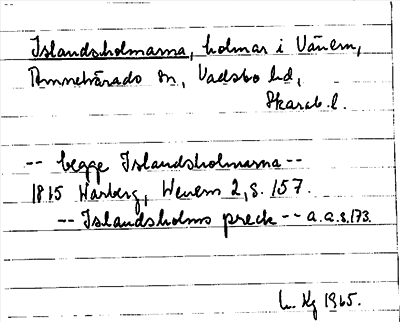 Islandsholmarna, holmar i Vänern,
Amnehärads sn, Vadsbo hd,
Skarab. l.
-- begge Islandsholmarna --
1815 Warberg, Wenern 2, s. 157.
-- Islandsholms preck -- a.a.s. 173.
Kg 1965.